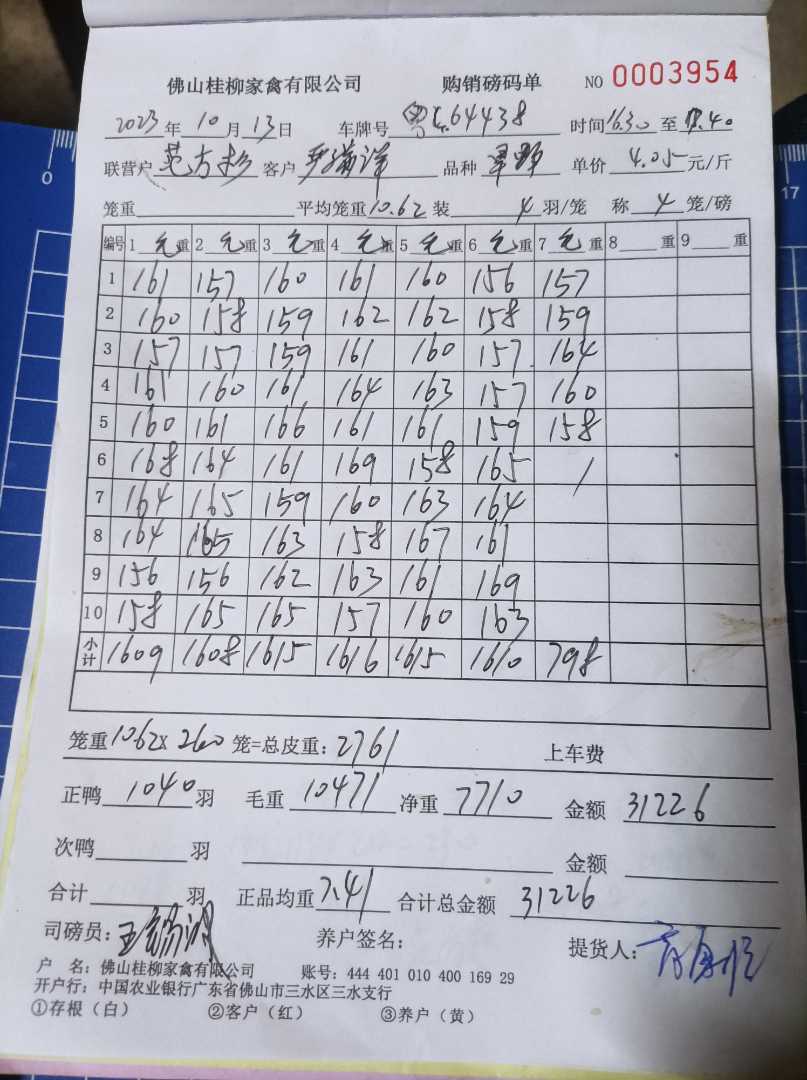 佛山桂柳家禽有限公司 购销磅码单 NO 0003954
2023年10月13日 车牌号 粤E64438 时间16.30至18.40
联营户 范方杉 客户 品种 单价 4.05元/斤
笼重 平均笼重10.62装 4羽/笼 称 4笼/磅
编号 1毛重 2毛重 3毛重 4毛重 5毛重 6毛重 7毛重 8重 9重
1 161 157 160 161 160 156 157
2 160 158 159 162 162 158 159
3 157 157 159 161 160 157 164
4 161 160 161 164 163 157 160
5 160 161 166 161 161 159 158
6 168 164 161 169 158 165 /
7 164 165 159 160 163 164
8 164 165 163 158 167 161
9 156 156 162 163 161 169
10 158 165 165 157 160 163
小计 1609 1608 1615 1616 1615 1610 798
笼重1062X 260笼=总皮重:2761 上车费
正鸭 1040 羽 毛重 10471 净重 7710 金额 31226
次鸭 羽 金额
合计 羽 正品均重7.41 合计总金额 31226
司磅员: 养户签名: 提货人:
户 名:佛山桂柳家禽有限公司 账号:444 401 010 400 169 29
开户行:中国农业银行广东省佛山市三水区三水支行
①存根(白) ②客户(红) ③养户(黄)
0
17